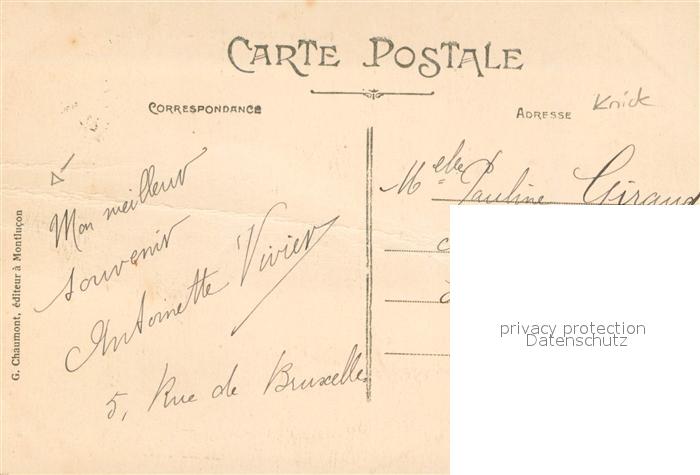 CARTE POSTALE
CORRESPONDANCE
ADRESSE
Knick
Mon meilleur
souvenir
Antoinette Vivier
5, Rue de Bruxelles
Melle Pauline Giraud
privacy protection
Datenschutz
G. Chaumont, éditeur à Montluçon